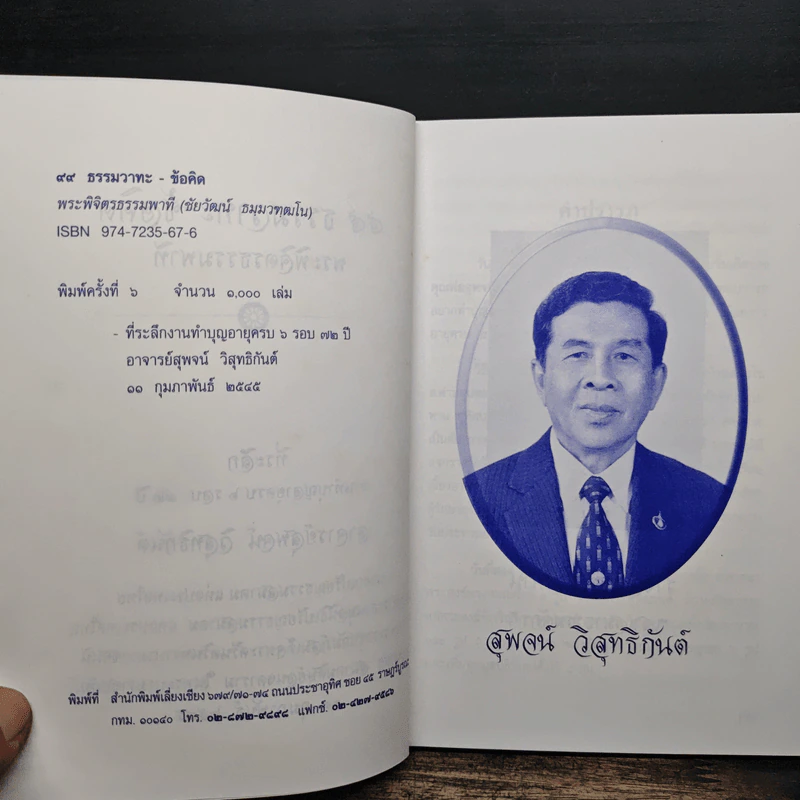 ๙๙ ธรรมวาทะ - ข้อคิด
พระพิจิตรธรรมพาที (ชัยวัฒน์ ธมฺมวฑฺฒโน)
ISBN 974-7235-67-6
พิมพ์ครั้งที่ ๖ จำนวน ๑.๐๐๐ เล่ม
- ที่ระลึกงานทำบุญอายุครบ ๖ รอบ ๗๒ ปี
อาจารย์สุพจน์ วิสุทธิกันต์
๑๑ กุมภาพันธ์ ๒๕๔๕
พิมพ์ที่ สำนักพิมพ์เลี่ยงเชียง ๖๗๙/๗๐-๗๔ ถนนประชาอุทิศ ซอย ๔๕ ราษฎร์บูรณะ
กทม. ๑๐๑๔๐ โทร. ๐๒-๘๗๒-๙๘๙๘ แฟกซ์. ๐๒-๔๒๗-๙๕๘๖
สุพจน์ วิสุทธิกันต์